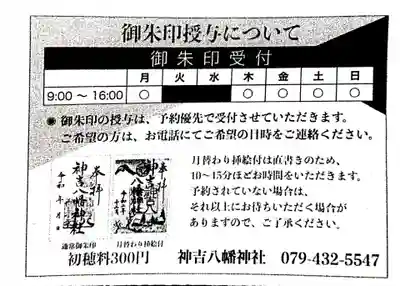 御朱印授与について
御朱印受付
月 火 水 木 金 土 日
9:00 ～ 16:00 ○ ○ ○ ○ ○
● 御朱印の授与は、予約優先で受付させていただきます。
ご希望の方は、お電話にてご希望の日時をご連絡ください。
奉拝
神吉八幡神社
令和 年 月 日
奉拝
月替わり挿絵付は直書きのため、
10～15分ほどお時間をいただきます。
予約されていない場合は、
それ以上にお待ちいただく場合が
ありますので、ご了承ください。
通常御朱印 月替わり挿絵付
初穂料300円 神吉八幡神社 079-432-5547